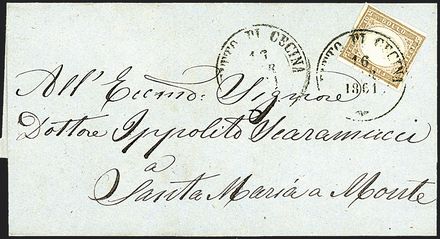 FITTO DI CECINA
16
FITTO DI CECINA
16
1861
BOLLO
All' Eccmo: Signore
Dottore Ippolito Scaramucci
a
Santa Maria a Monte